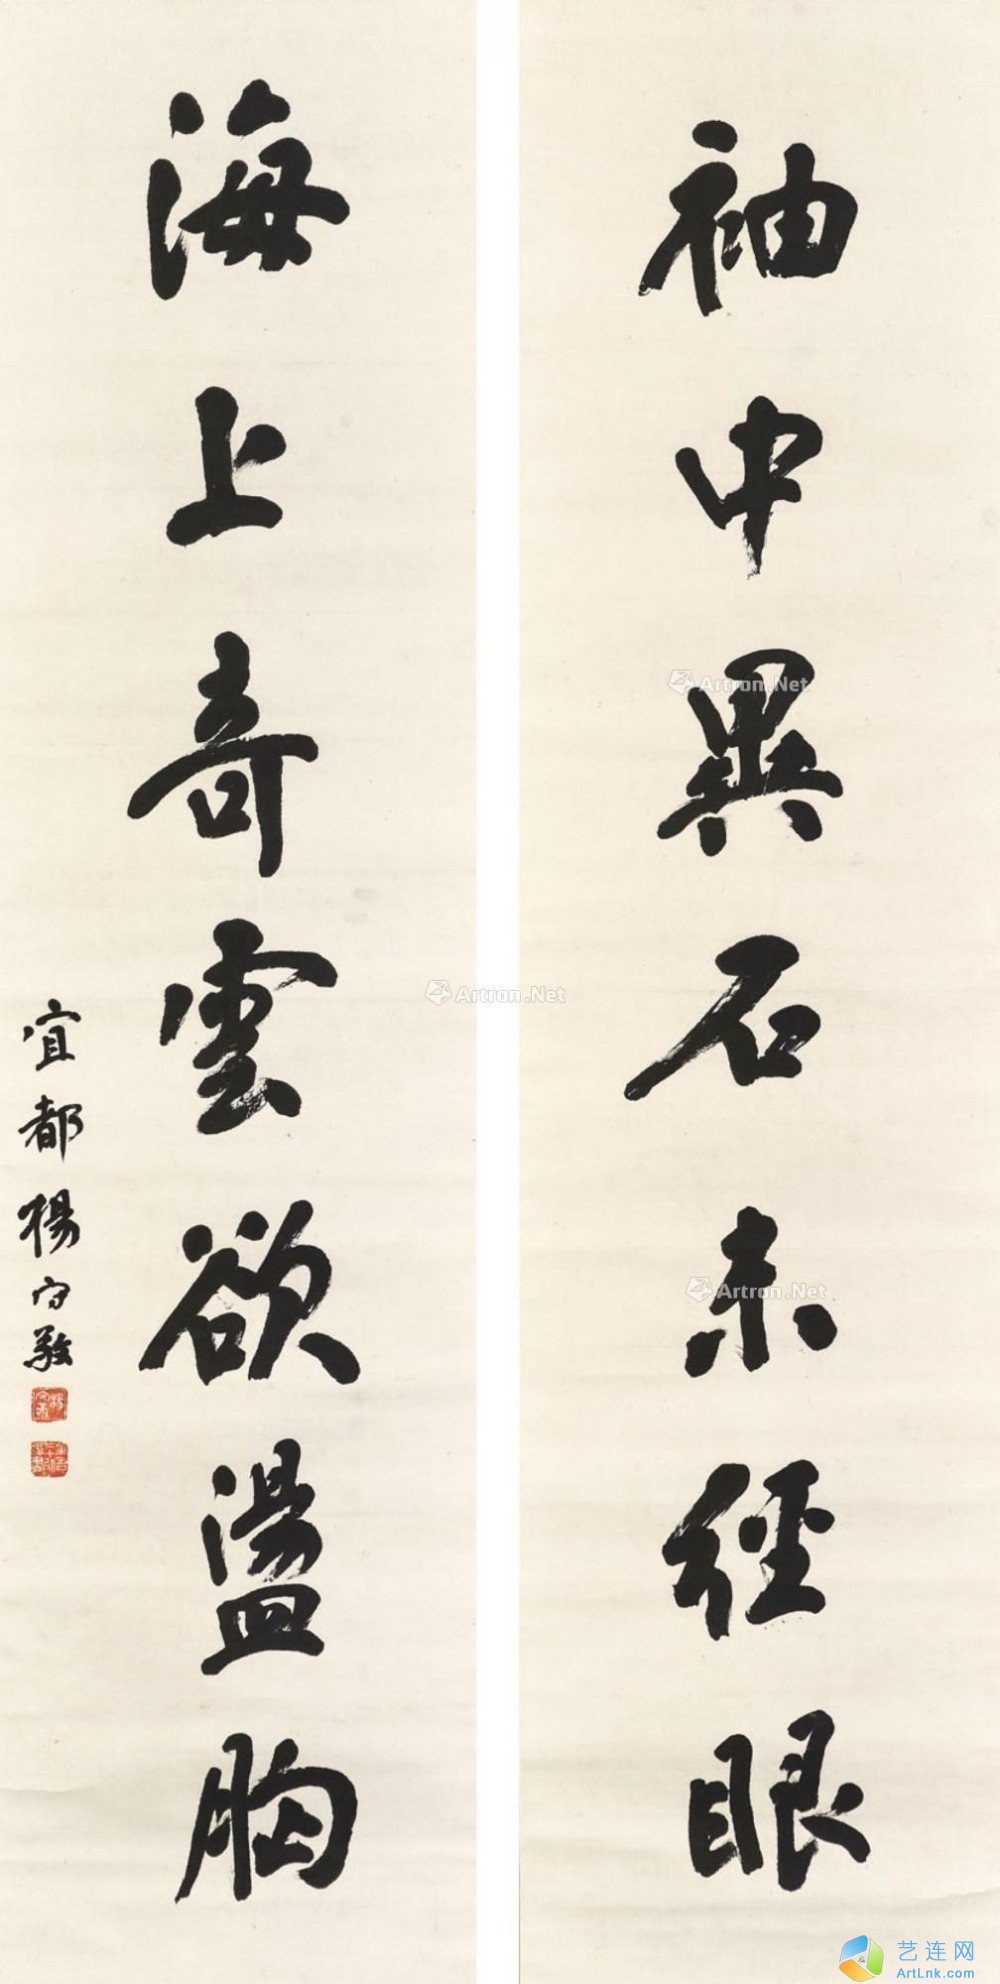 袖中異石未經眼
海上奇雲欲盪胸
宜都楊守敬
Artron.Net
Artron.Net
Artron.Net
艺连网
ArtLnk.com